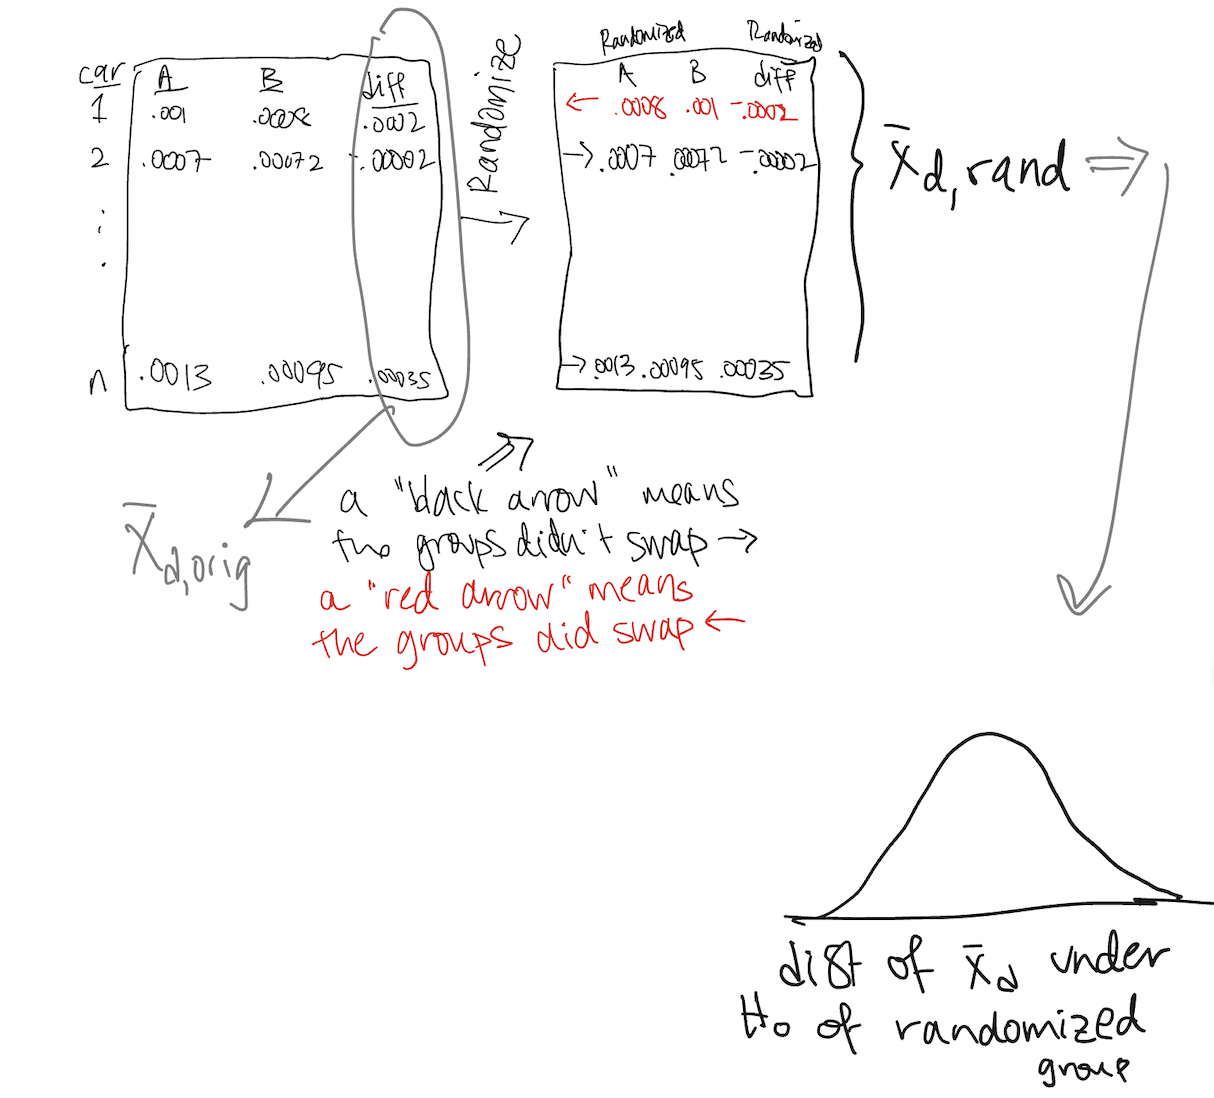 car A B diff
1 .001 .0008 .0002
2 .0007 .00072 -.00002
n .0013 .00095 .00035
Randomize
Randomized Randomized
A B diff
← .0008 .001 -.0002
→ .0007 .0072 -.00002
→ .0013 .00095 .00035
x̄d,rand ⇒
x̄d,orig
a "black arrow" means
the groups didn't swap →
a "red arrow" means
the groups did swap ←
dist of x̄d under
Ho of randomized
group